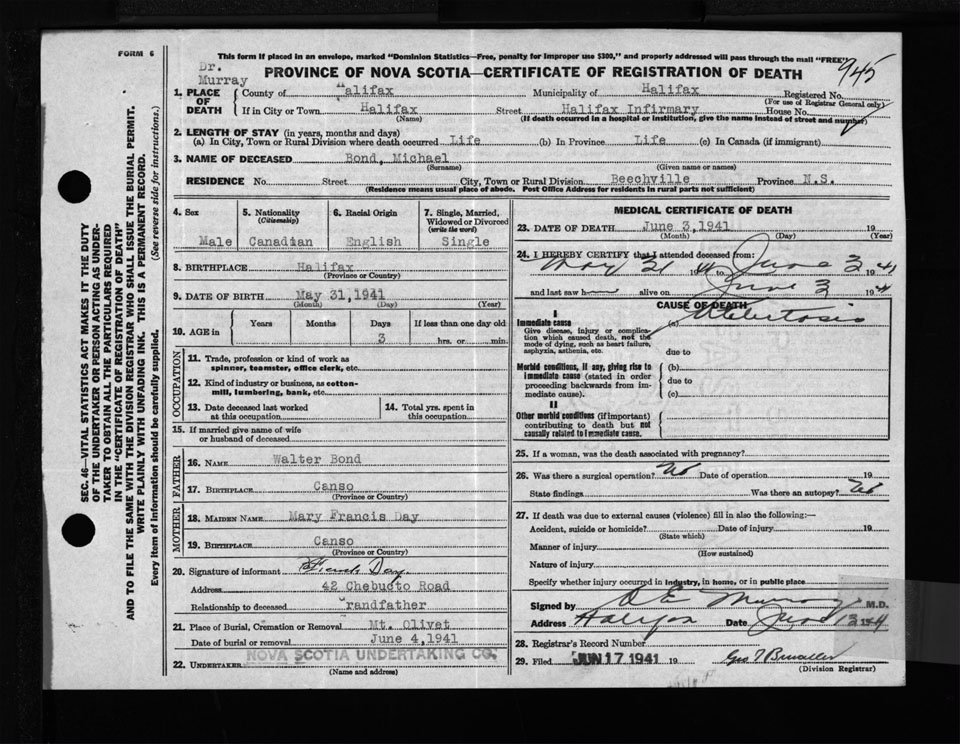 FORM 6
This form if placed in an envelope, marked "Dominion Statistics—Free, penalty for improper use $300," and properly addressed will pass through the mail "FREE"
Dr.
Murray
PROVINCE OF NOVA SCOTIA—CERTIFICATE OF REGISTRATION OF DEATH
945
1. PLACE OF DEATH
County of Halifax Municipality of Halifax Registered No.
(For use of Registrar General only)
If in City or Town Halifax Street Halifax Infirmary House No.
(Name) (If death occurred in a hospital or institution, give the name instead of street and number)
2. LENGTH OF STAY (in years, months and days)
(a) In City, Town or Rural Division where death occurred Life (b) In Province Life (c) In Canada (if immigrant)
3. NAME OF DECEASED Bond, Michael
(Surname) (Given name or names)
RESIDENCE No. Street City, Town or Rural Division Beechville Province N.S.
(Residence means usual place of abode. Post Office Address for residents in rural parts not sufficient)
4. Sex 5. Nationality (Citizenship) 6. Racial Origin 7. Single, Married, Widowed or Divorced (write the word)
Male Canadian English Single
8. BIRTHPLACE Halifax
(Province or Country)
9. DATE OF BIRTH May 31,1941
(Month) (Day) (Year)
10. AGE in Years Months Days If less than one day old
3 hrs. or min.
OCCUPATION
11. Trade, profession or kind of work as
spinner, teamster, office clerk, etc.
12. Kind of industry or business, as cotton-
mill, lumbering, bank, etc.
13. Date deceased last worked
at this occupation
14. Total yrs. spent in
this occupation
15. If married give name of wife
or husband of deceased
FATHER
16. NAME Walter Bond
17. BIRTHPLACE Canso
(Province or Country)
MOTHER
18. MAIDEN NAME Mary Francis Day
19. BIRTHPLACE Canso
(Province or Country)
20. Signature of informant Day
Address 42 Chebucto Road
Relationship to deceased Grandfather
21. Place of Burial, Cremation or Removal Mt. Olivet
Date of burial or removal June 4,1941
22. UNDERTAKER NOVA SCOTIA UNDERTAKING CO.
(Name and address)
MEDICAL CERTIFICATE OF DEATH
23. DATE OF DEATH June 3,1941 19
(Month) (Day) (Year)
24. I HEREBY CERTIFY that I attended deceased from:
May 31 19 41 to June 3 1941
and last saw h alive on June 3 1941
CAUSE OF DEATH
I
Immediate cause (a) Atelectasis
Give disease, injury or complica-
tion which caused death, not the
mode of dying, such as heart failure,
asphyxia, asthenia, etc.
due to
Morbid conditions, if any, giving rise to
immediate cause (stated in order
proceeding backwards from im-
mediate cause).
(b)
due to
(c)
II
Other morbid conditions (if important)
contributing to death but not
causally related to immediate cause.
25. If a woman, was the death associated with pregnancy?
26. Was there a surgical operation? No Date of operation 19
State findings Was there an autopsy? No
27. If death was due to external causes (violence) fill in also the following:—
Accident, suicide or homicide? Date of injury 19
(State which)
Manner of injury
(How sustained)
Nature of injury
Specify whether injury occurred in industry, in home, or in public place
Signed by D E Murray M.D.
Address Halifax Date June
28. Registrar's Record Number
29. Filed JUN 17 1941 19
(Division Registrar)
SEC. 46—VITAL STATISTICS ACT MAKES IT THE DUTY
OF THE UNDERTAKER OR PERSON ACTING AS UNDER-
TAKER TO OBTAIN ALL THE PARTICULARS REQUIRED
IN THE "CERTIFICATE OF REGISTRATION OF DEATH"
AND TO FILE THE SAME WITH THE DIVISION REGISTRAR WHO SHALL ISSUE THE BURIAL PERMIT.
WRITE PLAINLY WITH UNFADING INK. THIS IS A PERMANENT RECORD.
Every item of information should be carefully supplied. (See reverse side for instructions.)